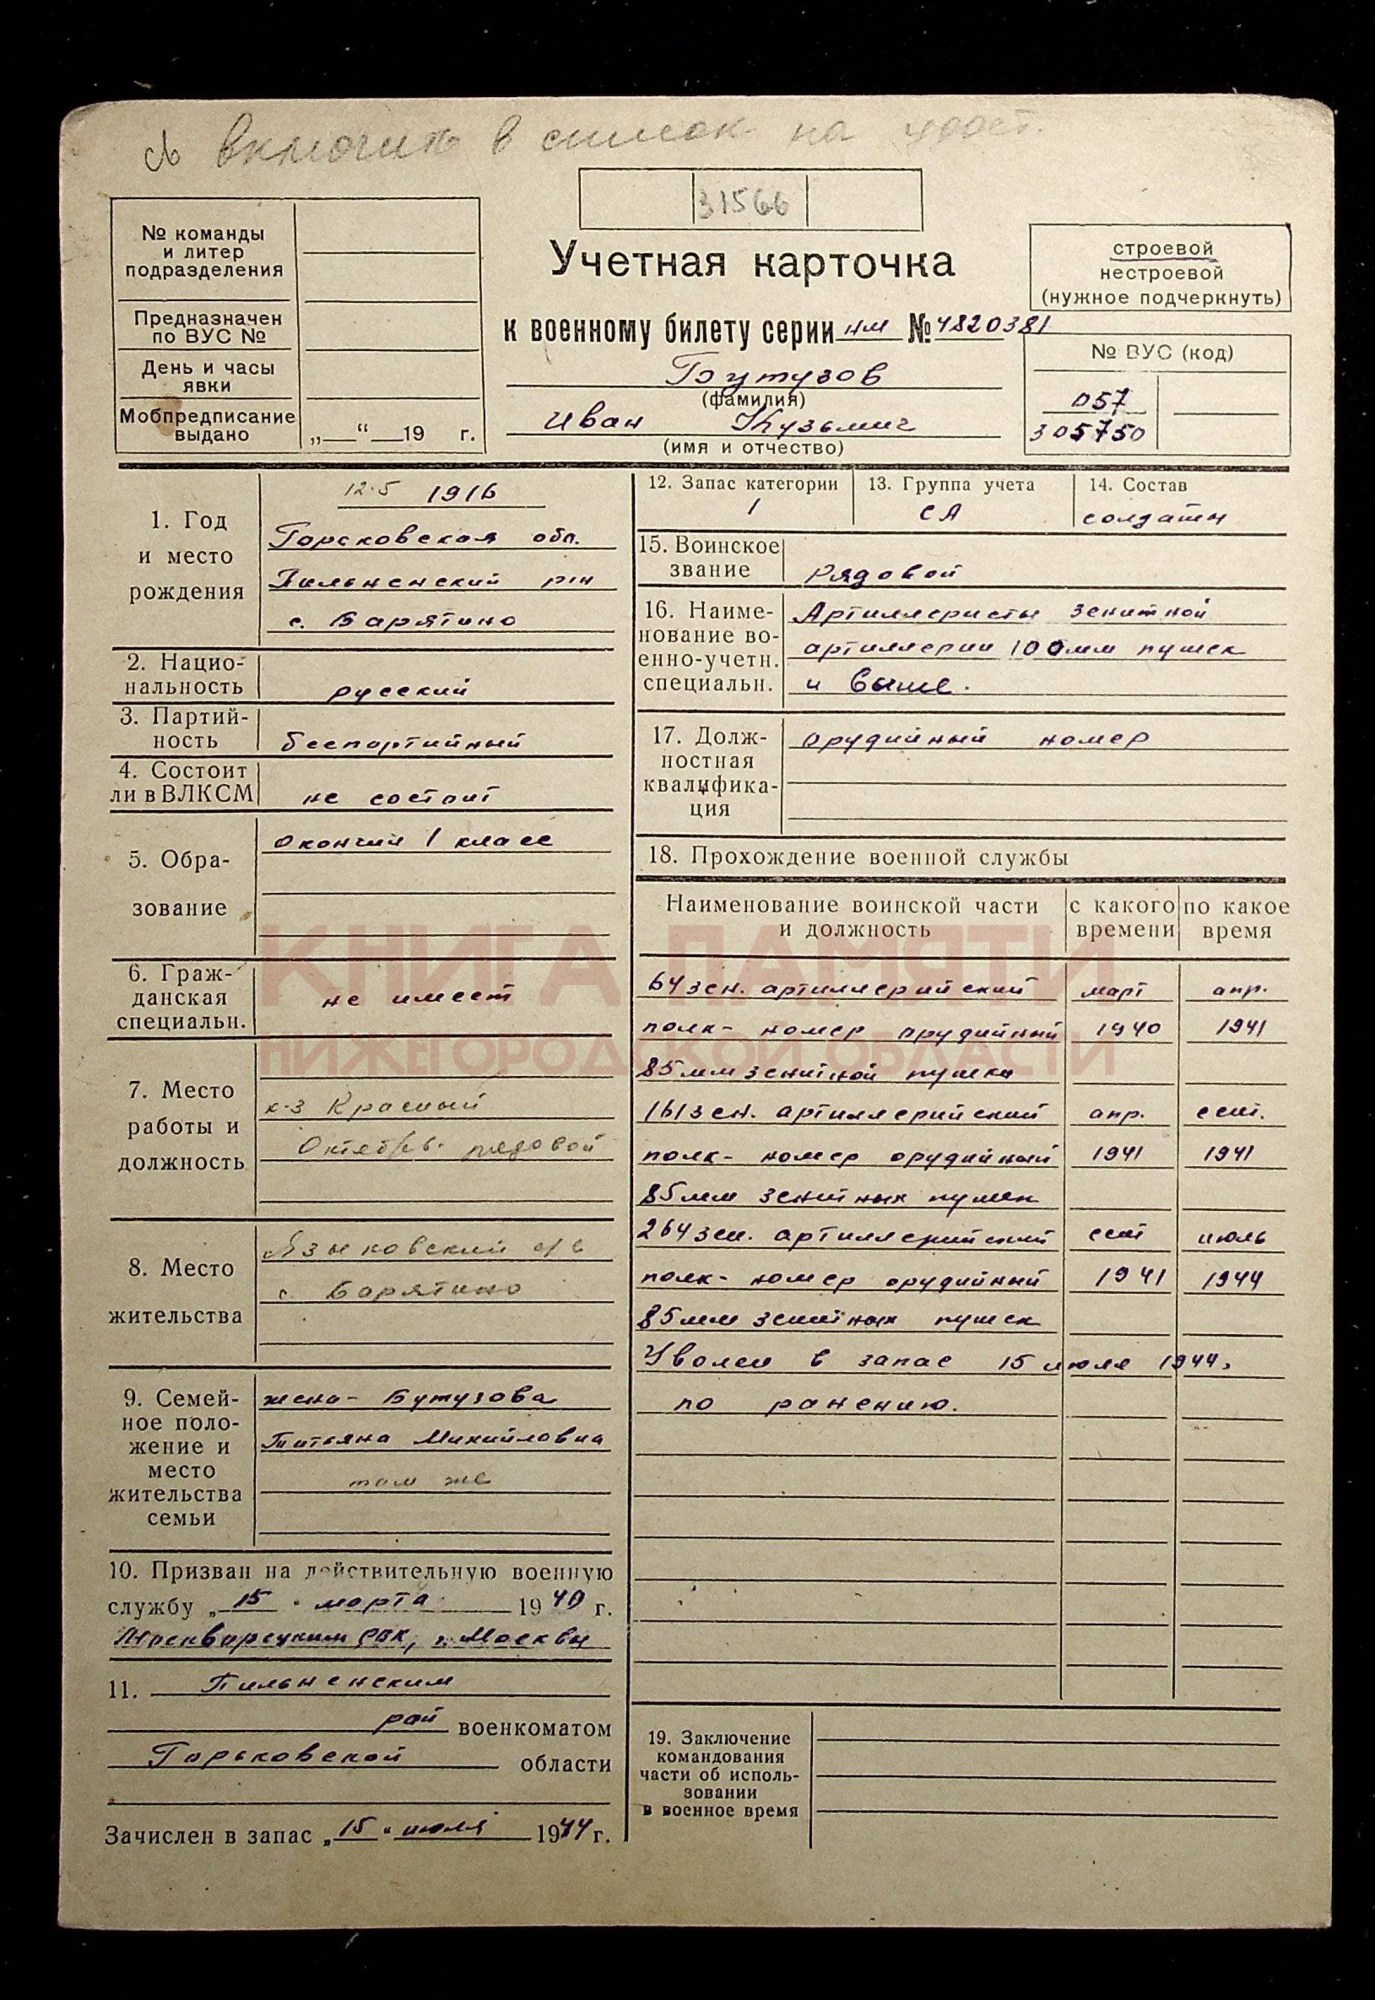 включить в список на удост.
31566
№ команды
и литер
подразделения
Предназначен
по ВУС №
День и часы
явки
Мобпредписание
выдано
„ “ 19 г.
Учетная карточка
к военному билету серии нм № 4820381
Бутузов
(фамилия)
Иван Кузьмич
(имя и отчество)
строевой
нестроевой
(нужное подчеркнуть)
№ ВУС (код)
057
305750
1. Год
и место
рождения
12.5 1916
Горьковская обл.
Пильненский р-н
с. Барятино
2. Нацио-
нальность
русский
3. Партий-
ность
беспартийный
4. Состоит
ли в ВЛКСМ
не состоит
5. Обра-
зование
окончил 1 класс
6. Граж-
данская
специальн.
не имеет
7. Место
работы и
должность
к-з Красный
Октябрь. рядовой
8. Место
жительства
Языковский с/с
с. Барятино
9. Семей-
ное поло-
жение и
место
жительства
семьи
жена - Бутузова
Татьяна Михайловна
там же
10. Призван на действительную военную
службу „ 15 " марта 1940 г.
Москворецким РВК, г. Москвы
11. Пильненским
рай военкоматом
Горьковской области
Зачислен в запас „ 15 " июля 1944 г.
12. Запас категории
1
13. Группа учета
СА
14. Состав
солдаты
15. Воинское
звание
Рядовой
16. Наиме-
нование во-
енно-учетн.
специальн.
Артиллеристы зенитной
артиллерии 100мм пушек
и выше.
17. Долж-
ностная
квалифика-
ция
орудийный номер
18. Прохождение военной службы
Наименование воинской части
и должность
с какого
времени
по какое
время
64 зен. артиллерийский март апр.
полк - номер орудийный 1940 1941
85мм зенитной пушки
161 зен. артиллерийский апр. сент.
полк - номер орудийный 1941 1941
85мм зенитных пушек
264 зен. артиллерийский сент июль
полк - номер орудийный 1941 1944
85мм зенитных пушек
Уволен в запас 15 июля 1944г
по ранению.
19. Заключение
командования
части об исполь-
зовании
в военное время
КНИГА ПАМЯТИ
НИЖЕГОРОДСКОЙ ОБЛАСТИ